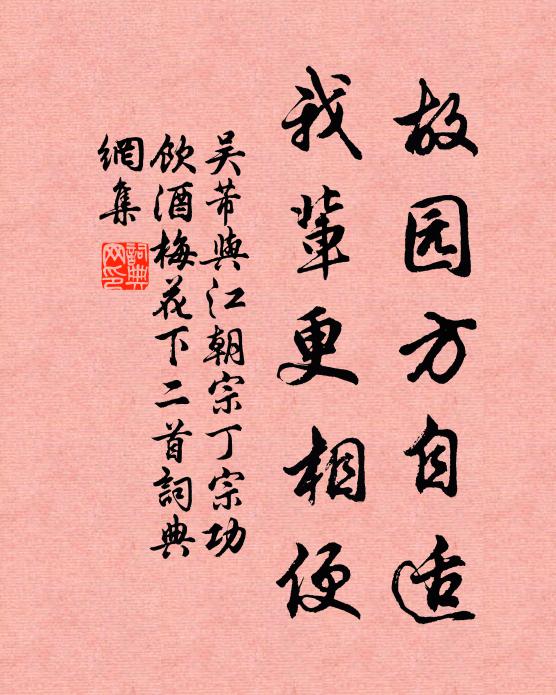 故园方自适
我輩更相便
吴芾與江朝宗丁宗功
飲酒梅花下二首詞典
網集
詞典
网印